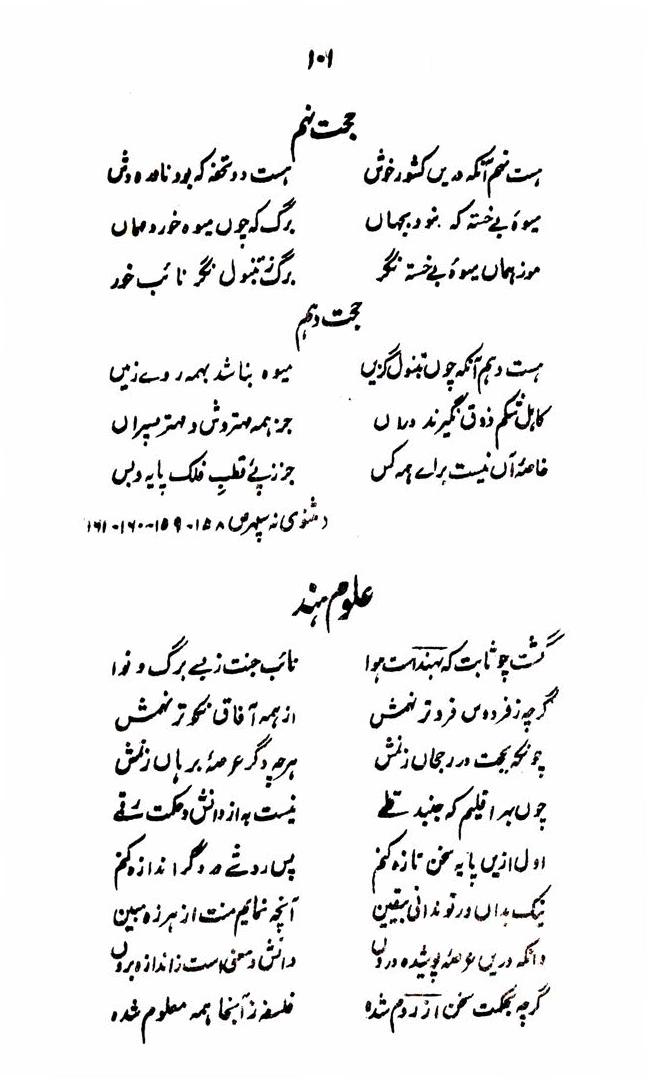 ۱۰۱
حجت نہم
ہست نہم آنکہ دریں کشور خوش ہست دو تحفہ کہ بود نادرہ وش
میوۂ بے خستہ کہ نبود بجہاں برگ کہ چوں میوہ خورد مہماں
موز ہماں میوۂ بے خستہ نگر برگ ز تنبول نگر نائب خور
حجت دہم
ہست دہم آنکہ چوں تنبول گزیں میوہ نباشد بہمہ روے زمیں
کاہل شکم ذوق نگیرند دراں جز ہمہ مہتروش و مہتر پسراں
خاصۂ آں نیست براے ہمہ کس جز ز پۓ قطبِ فلک پایہ و بس
(مثنوی نہ سپہر ص ۱۵۸-۱۵۹-۱۶۰-۱۶۱
علوم ہند
گشت چو ثابت کہ بہند است ہوا نائب جنت ز پے برگ و نوا
گرچہ ز فردوس فروتر نہمش از ہمہ آفاق نکوتر نہمش
چونکہ بحجت در رجحاں زنمش ہرچہ دگر عرصۂ برہاں زنمش
چوں بہر اقلیم کہ جنبد قلمے نیست بہ از دانش و حکمت رقمے
اول ازیں پایہ سخن تازہ کنم پس روشے دگر اندازہ کنم
نیک بداں ور تو ندانی بیقین آنچہ نمایم منت از ہرزہ مبین
دانکہ دریں عرصۂ پوشیدہ دروں دانش و معنی است ز اندازہ بروں
گرچہ بحکمت سخن از روم شدہ فلسفہ ز آنجا ہمہ معلوم شدہ